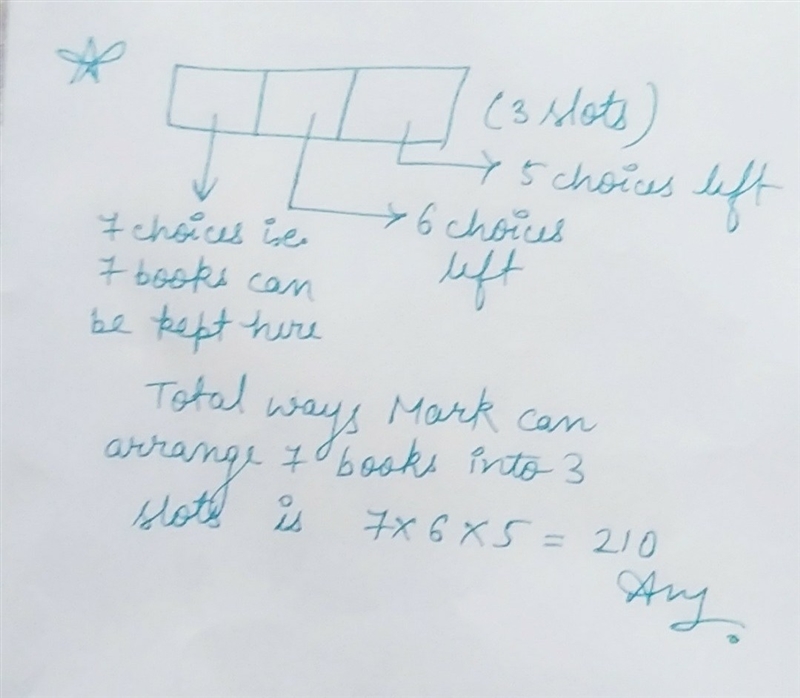 (3 slots)
5 choices left
7 choices i.e.
7 books can
be kept here
6 choices
left
Total ways Mark can
arrange 7 books into 3
slots is 7 × 6 × 5 = 210
Ans.